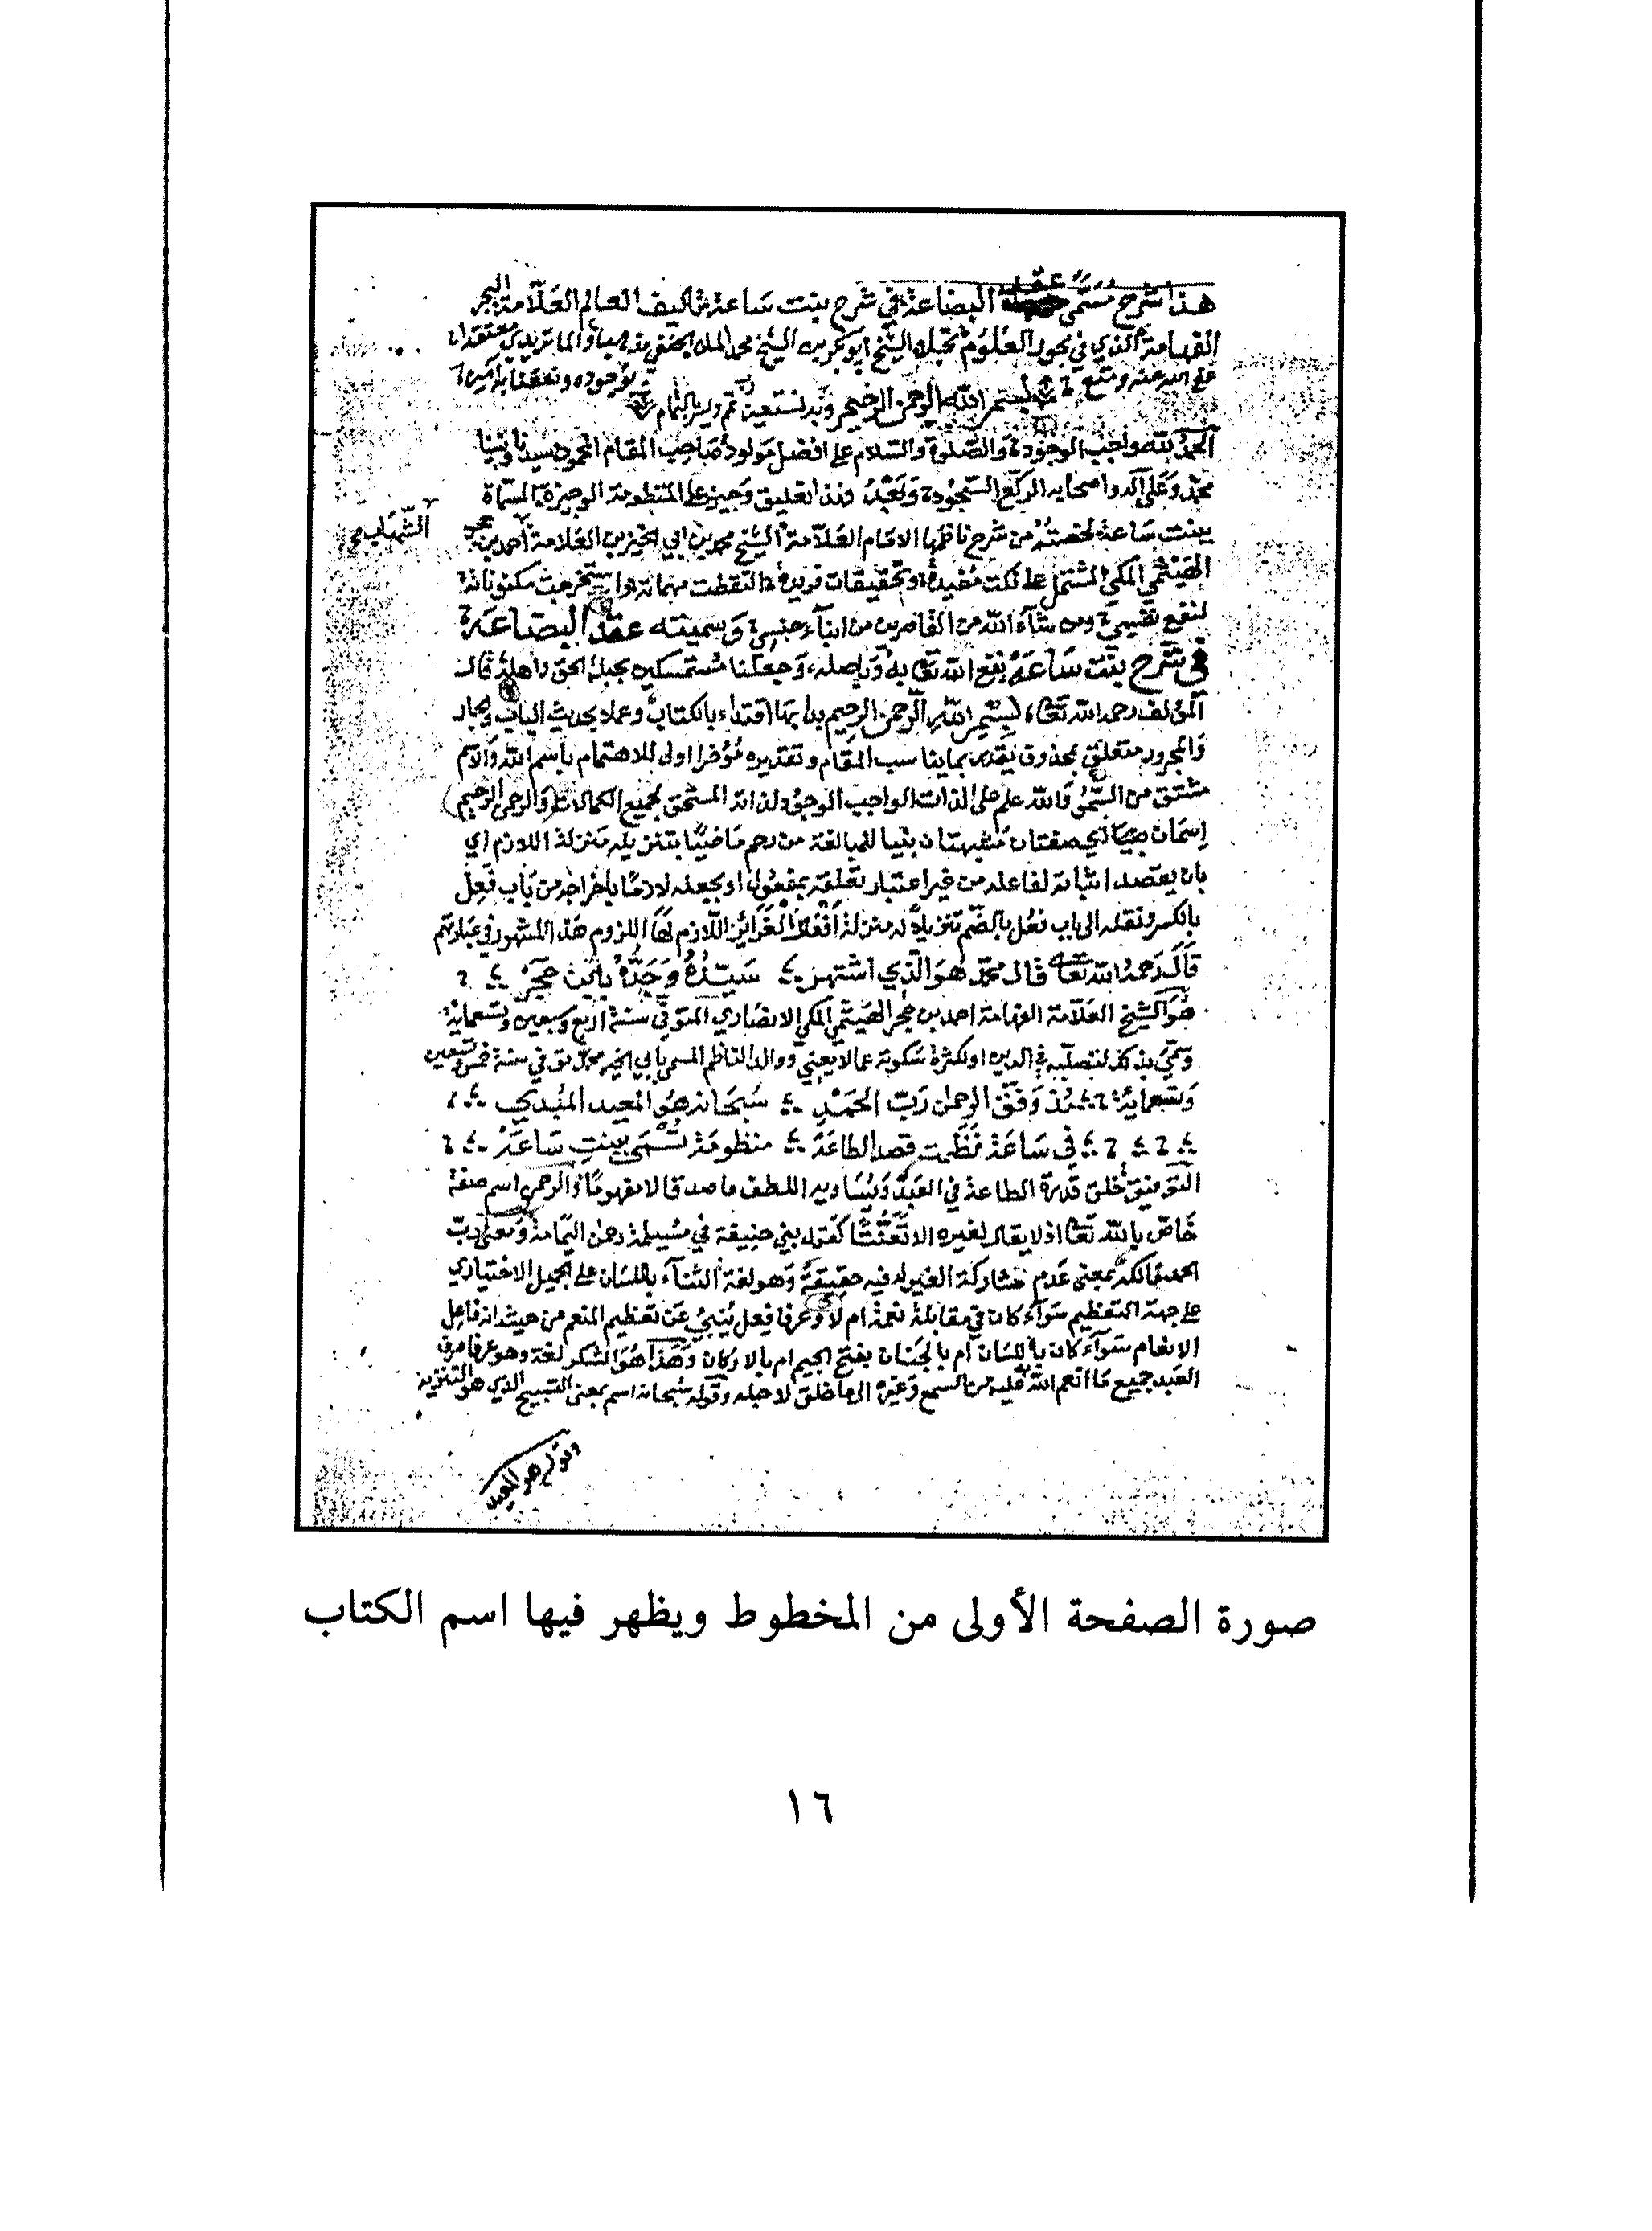 هذا شرح مسمى عقد البضاعة في شرح بنت ساعة تأليف العالم العلامة البحر
الفهامة الذي في بحور العلوم الشيخ أبو بكر بن الشيخ محمد الملا الحنفي مذهبا والماتريدي معتقدا
بسم الله الرحمن الرحيم وبه نستعين رب تمم ويسر بالتمام
الحمد لله واجب الوجود والصلوة والسلام على افضل مولود صاحب المقام المحمود سيدنا ونبينا
محمد وعلى آله واصحابه الركع السجود وبعد فذا تعليق وجيز على المنظومة الوجيزة المسماة
ببنت ساعة لخصته من شرح ناظمها الامام العلامة الشيخ محمد بن ابي الخير بن العلامة احمد بن حجر
الشهاب
الهيتمي المكي المشتمل على نكت مفيدة وتحقيقات فريدة التقطت مهماته واستخرجت مكنوناته
لنفع نفسي ومن شاء الله من القاصرين من ابناء جنسي وسميته عقد البضاعة
في شرح بنت ساعة نفع الله تعالى به وباصله وجعلنا مستمسكين بحبل الحق واهله قال
المؤلف رحمه الله تعالى بسم الله الرحمن الرحيم بدا بها اقتداء بالكتاب وعملا بحديث الباب والجار
والمجرور متعلق بمحذوف يقدر بما يناسب المقام وتقديره مؤخرا اولى للاهتمام باسم الله والاسم
مشتق من السمو والله علم على الذات الواجب الوجود لذاته المستحق لجميع الكمالات والرحمن الرحيم
اسمان اي صفتان مشبهتان بنيا للمبالغة من رحم ماضيا بتنزيله منزلة اللازم اي
بان يقصد اثباته لفاعله من غير اعتبار تعلقه بمفعول او بجعله لازما باخراجه من باب فعل
بالكسر ونقله الى باب فعل بالضم تنزيلا له منزلة افعال الغرائز اللازم لها اللزوم هذا المشهور في عبارتهم
قال رحمه الله تعالى قال محمد هو الذي اشتهر سيده وجده بابن حجر
هو الشيخ العلامة الفهامة احمد بن حجر الهيتمي المكي الانصاري المتوفى سنة اربع وسبعين وتسعمائة
وسمي بذلك لتصلبه في الدين او لكثرة سكوته عما لا يعني ووالد الناظم المسمى بابي الخير محمد توفي في سنة خمس وتسعين
وتسعمائة قد وفق الرحمن رب الحمد سبحانه هو المعيد المبدي
في ساعة نظمت قصد الطاعة منظومة تسمى ببنت ساعة
التوفيق خلق قدرة الطاعة في العبد ويساويه اللطف ماصدقا لا مفهوما والرحمن اسم صفة
خاص بالله تعالى اذ لا يقال لغيره الا تعنتا كقول بني حنيفة في مسيلمة رحمن اليمامة ومعنى رب
الحمد مالكه بمعنى عدم مشاركة الغير له فيه حقيقة وهو لغة الثناء باللسان على الجميل الاختياري
على جهة التعظيم سواء كان في مقابلة نعمة ام لا وعرفا فعل ينبئ عن تعظيم المنعم من حيث انه فاعل
الانعام سواء كان باللسان ام بالجنان بفتح الجيم ام بالاركان وهذا هو الشكر لغة وهو عرفا صرف
العبد جميع ما انعم الله عليه من السمع وغيره الى ما خلق لاجله وقوله سبحانه اسم بمعنى التسبيح الذي هو التنزيه
هو المعيد
صورة الصفحة الأولى من المخطوط ويظهر فيها اسم الكتاب
١٦